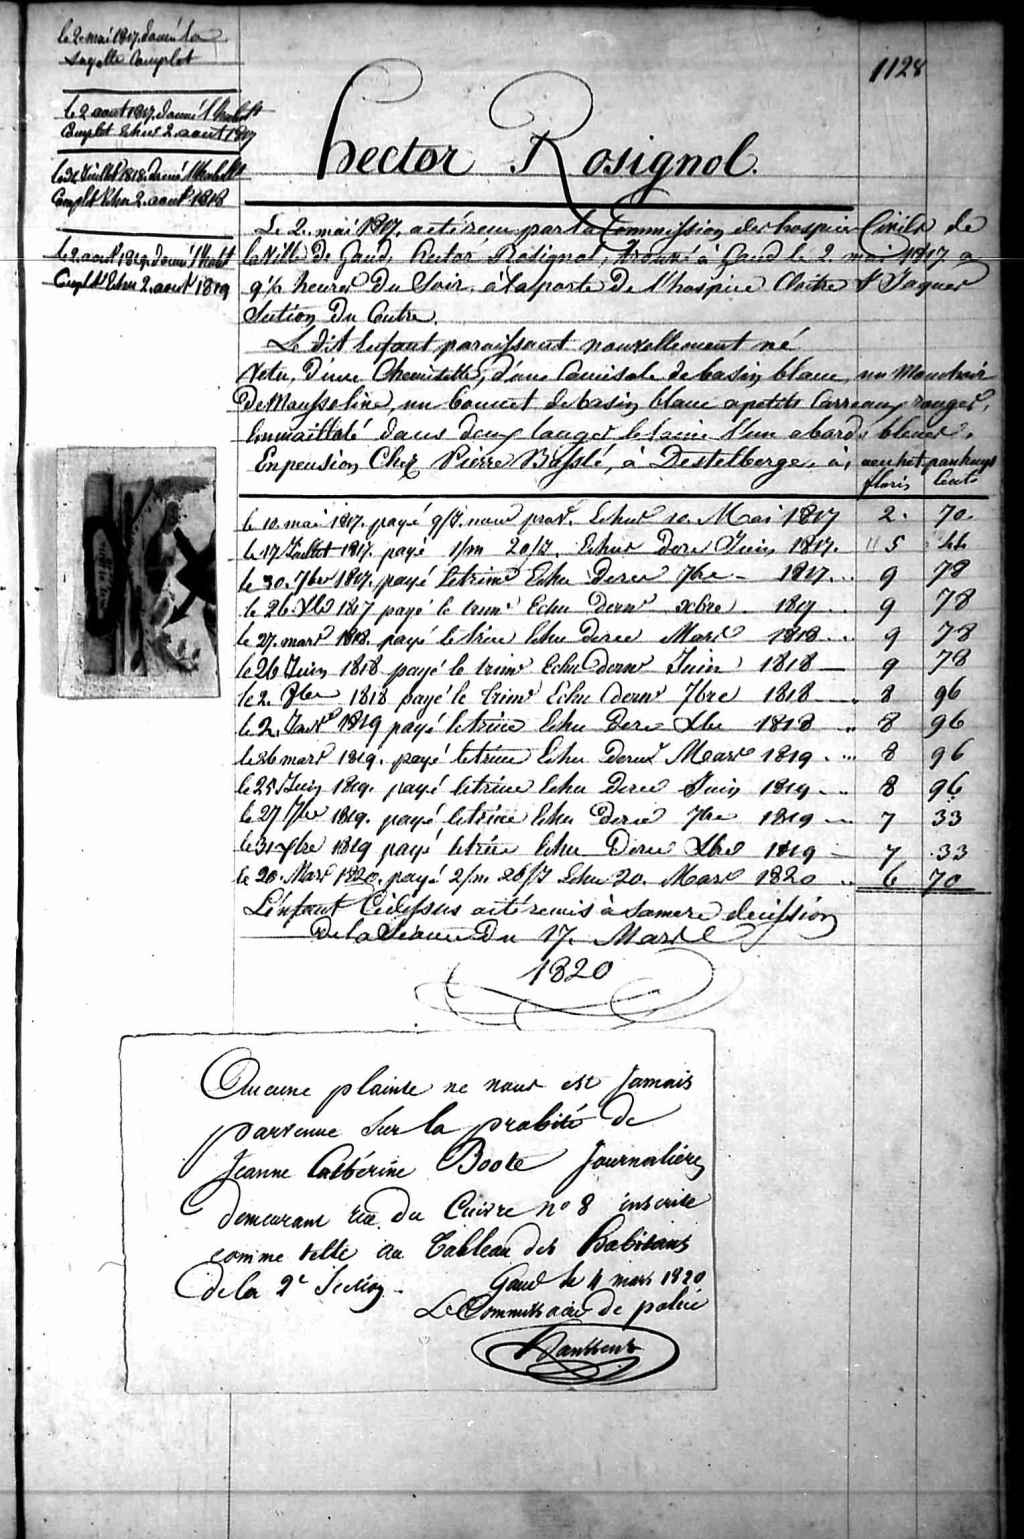 1128
le 2 mai 1817. donné la
Layette Complet
le 2 aout 1817. donné l'habilt
Complet Echu 2. aout 1817
Juillet 1818. donné l'habillt
Complt Echu 2. aout 1818
le 2 aout 1819. donné l'habt
Complt Echu 2. aout 1819
Hector Rosignol.
Le 2. mai 1817. a été reçu par la Commission des hospices Civils de
la Ville de Gand, Hector Rosignol, trouvé à Gand le 2 mai 1817 a
9½ heures du Soir, à la porte de l'hospice Cloitre St Jaques
Section du Centre.
Le dit Enfant paraissant nouvellement né
Vetu, d'une Chemisette, d'une Camisole de basin blanc, un Mouchoir
De Mousseline, un bonnet de basin blanc a petits Carreaux rouges,
Enmailloté dans deux langes de laine l'un a bords bleus.
En pension Chez Pierre à Destelberge, à
floris Cents
le 10. mai 1817. payé 9/J. Echus 10. Mai 1817 2. 70.
le 17 Juillet 1817. payé 1/m 20/J. Echus Dere Juin 1817. 5
le 30. 7bre 1817. payé le trime Echu Dere 7bre 1817. 9 78
le 26. Xbre 1817 payé le trime Echu Dernr xbre 1817 9 78
le 27. mars 1818. payé le trime Echu Dere Mars 1818 9 78
le 26 Juin 1818 payé le trimr Echu Dernr Juin 1818 9 78
le 2. 8bre 1818 payé le trimr Echu Dernr 7bre 1818 8 96
le 2. Janvr 1819 payé le trime Echu Dere Xbre 1818 8 96
le 26 mars 1819. payé le trime Echu Dere Mars 1819 8 96
le 25 Juin 1819. payé le trime Echu Dere Juin 1819 8 96
le 27 7bre 1819. payé le trime Echu Dere 7bre 1819 7 33
le 31 Xbre 1819 payé le trime Echu Dere Xbre 1819 7 33
le 20. Mars 1820. payé 2/m 20/J Echu 20. Mars 1820 6 70
L'enfant Cidessus a été remis à sa mere décission
De la Séance du 17. Mars
1820
Aucune plainte ne nous est Jamais
parvenue Sur la probité de
Jeanne Catherine Boote Journalière
demeurant rue du Cuivre no 8 inscrite
comme telle au tableau des habitans
de la 2e Section.
Gand le 4 mars 1820
Le Commissaire de police